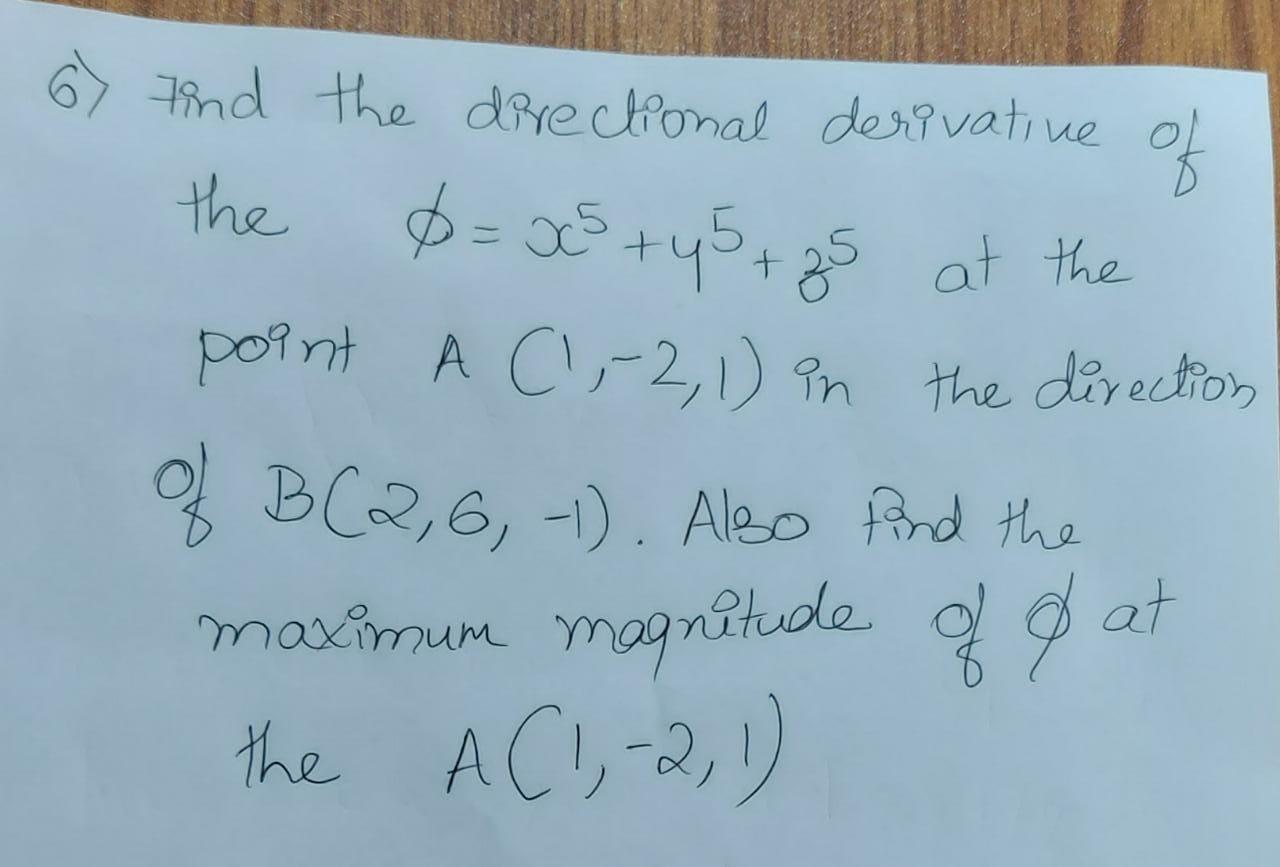 6) Find the directional derivative of
the ϕ = x⁵ + y⁵ + z⁵ at the
point A (1, -2, 1) in the direction
of B(2, 6, -1). Also find the
maximum magnitude of ϕ at
the A(1, -2, 1)